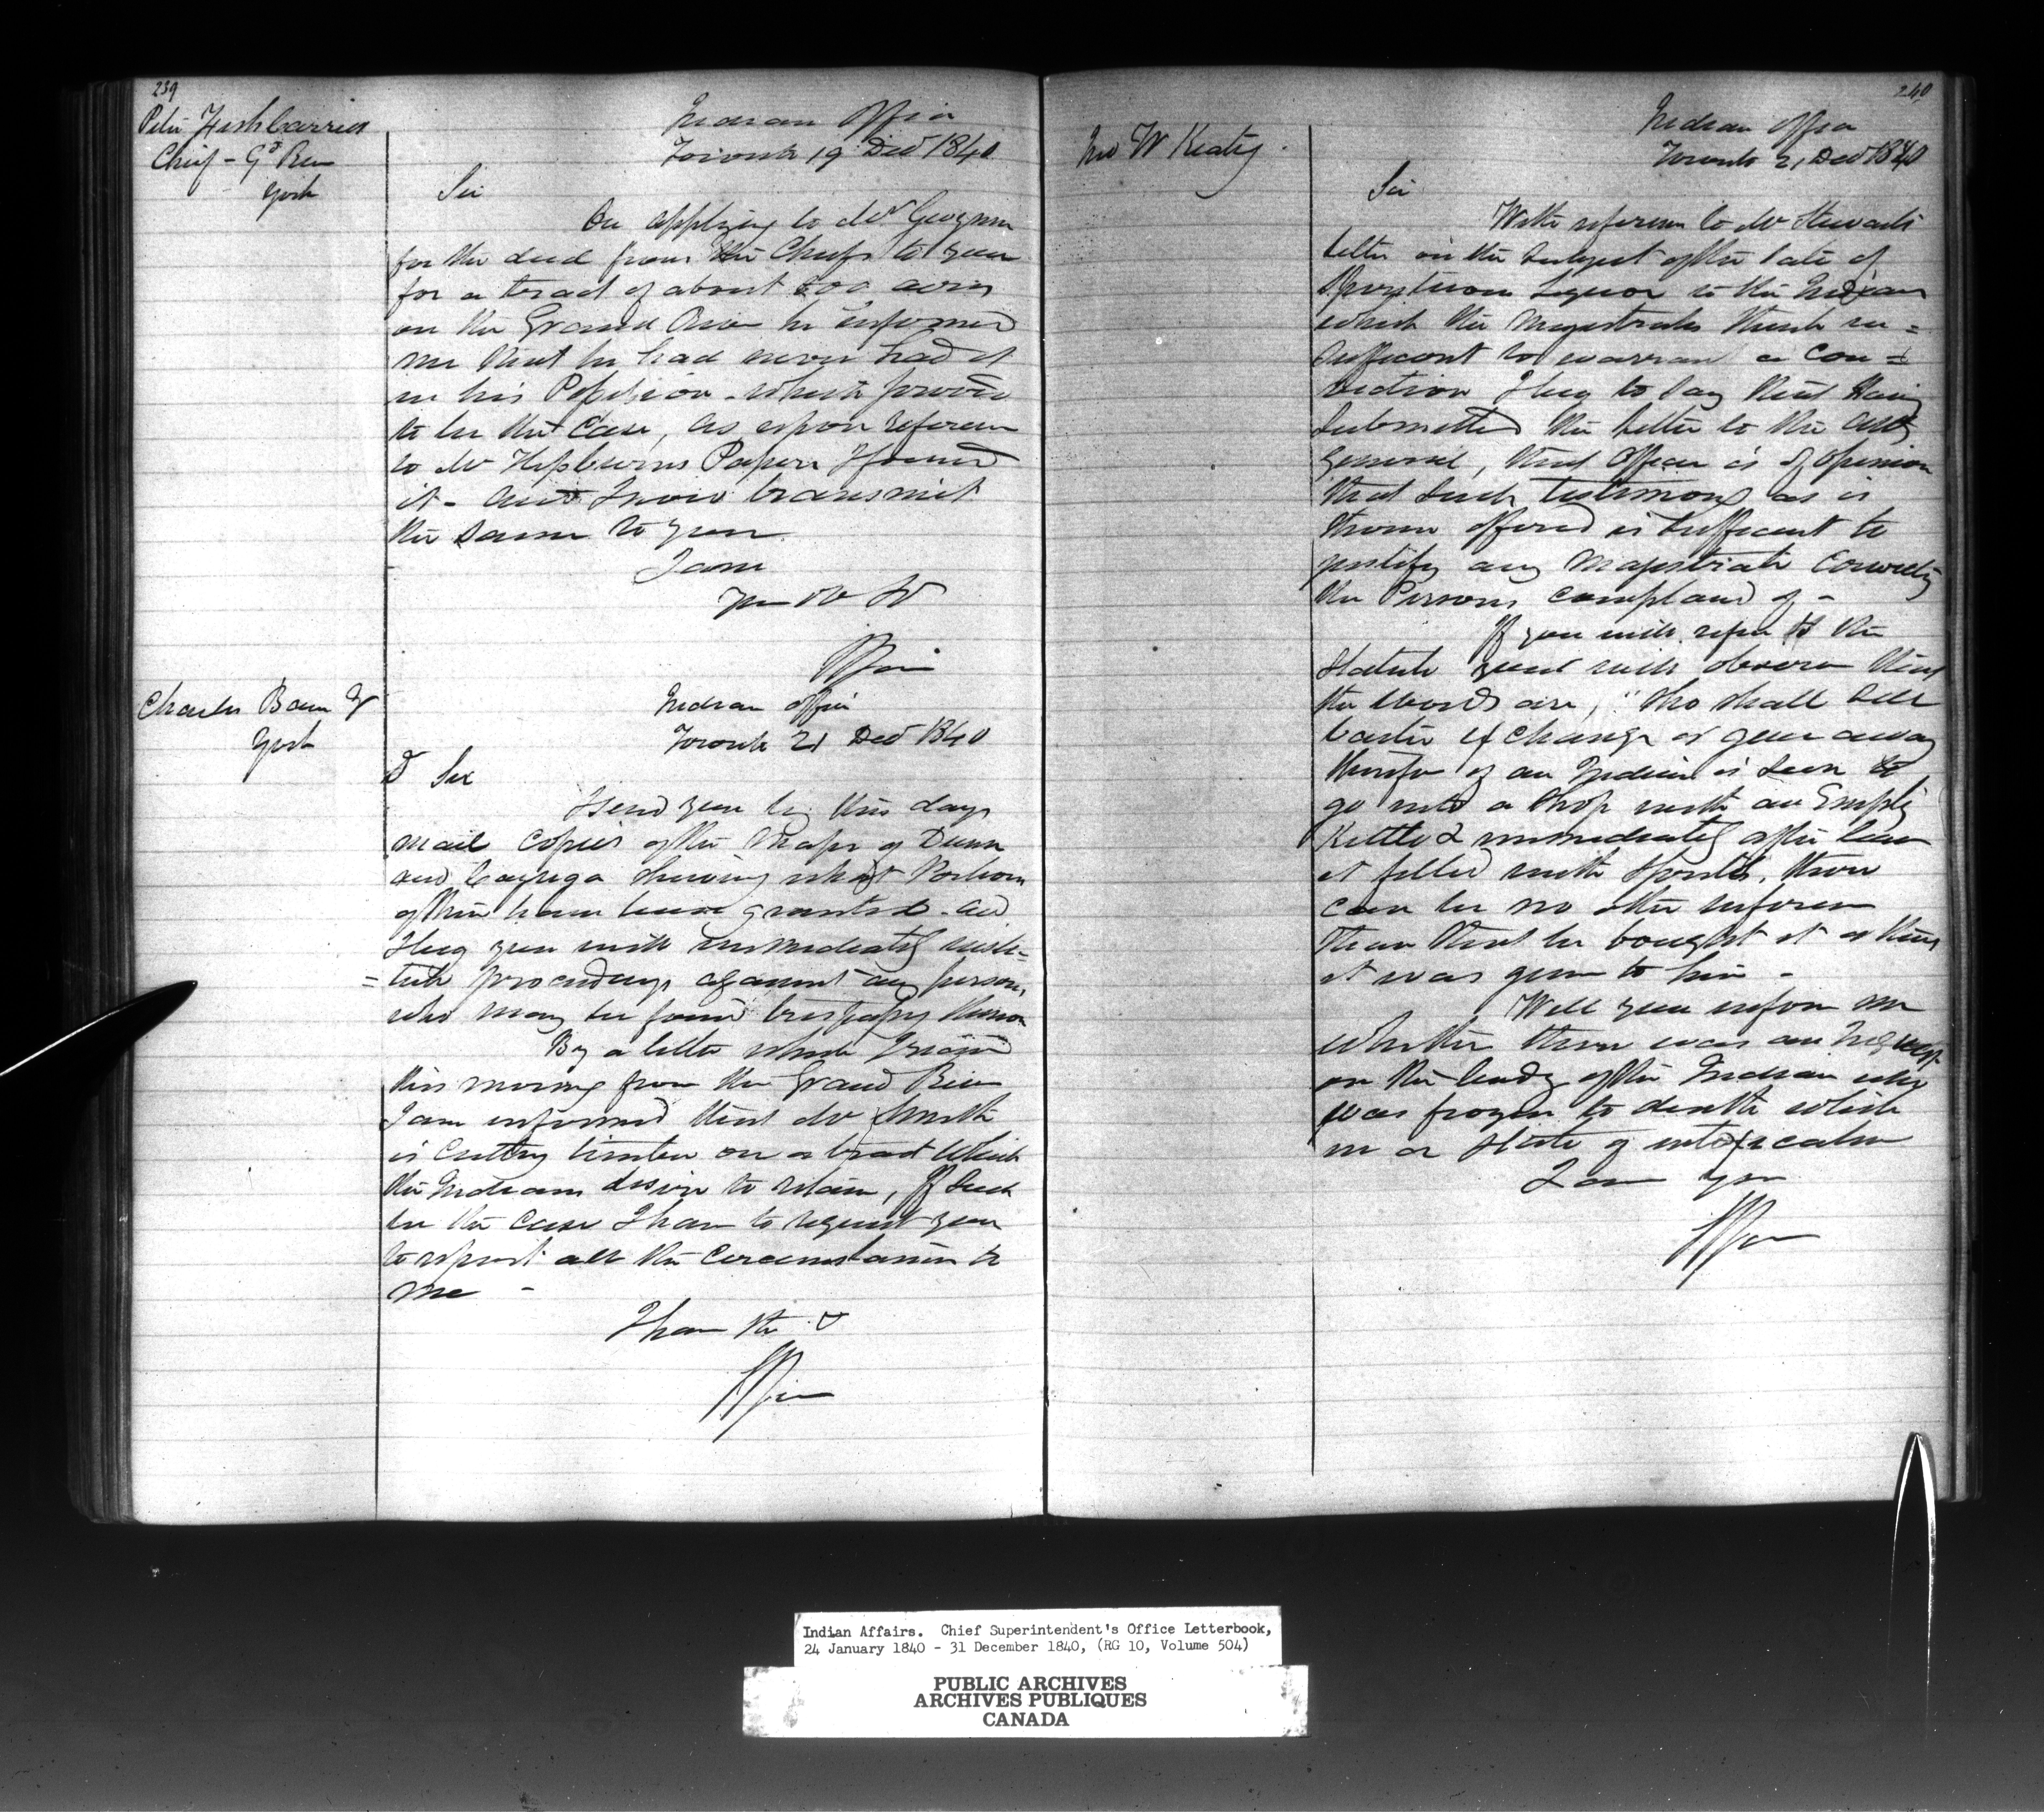 239
Peter Fishcarrier
Chief - Gd River
York
Indian Office
Toronto 19 Decr 1840
Sir
On applying to Mr Gwynne
for the deed from the Chiefs to you
for a tract of about 200 acres
on the Grand River he informed
me that he had never had it
in his Possession - which proves
to be the Case, as upon reference
to Mr Hepburns Papers I found
it - and I now transmit
the same to you.
I am
Your Ob St
Indian Office
Toronto 21 Decr 1840
Charles Bain
York
D Sir
I send you by this days
mail copies of the Maps of Dunn
and Cayuga shewing what Portions
of them have been granted - and
I beg you will immediately insti-
=tute proceedings against any persons
who may be found trespassing thereon
By a letter which I recd
this morning from the Grand River
I am informed that Mr Smith
is Cutting timber on a tract which
the Indians desire to retain, If such
be the Case I have to request you
to report all the Circumstances to
me -
I have the &
240
Jno W Keating.
Indian Office
Toronto 21 Decr 1840
Sir
With reference to Mr Stewards
letter on the subject of the sale of
Spirituous Liquor to the Indians
which the Magistrates think in=
sufficient to warrant a Con=
viction I beg to say that having
submitted the letter to the Atty
General, that Officer is of Opinion
that such testimony as is
therein offered is sufficient to
justify any Magistrate Convicting
the Persons complained of -
If you will refer to the
Statute you will observe that
the words are, "Who shall sell
barter exchange or give away
therefore if an Indian is seen to
go into a Shop with an Empty
Kettle & immediately after leave
it filled with Spirits, there
can be no other inference
than that he bought it or that
it was given to him -
Will you inform me
whether there was an Inquest
on the body of the Indian who
was frozen to death while
in a State of intoxication
I am Your
Indian Affairs. Chief Superintendent's Office Letterbook,
24 January 1840 - 31 December 1840, (RG 10, Volume 504)
PUBLIC ARCHIVES
ARCHIVES PUBLIQUES
CANADA